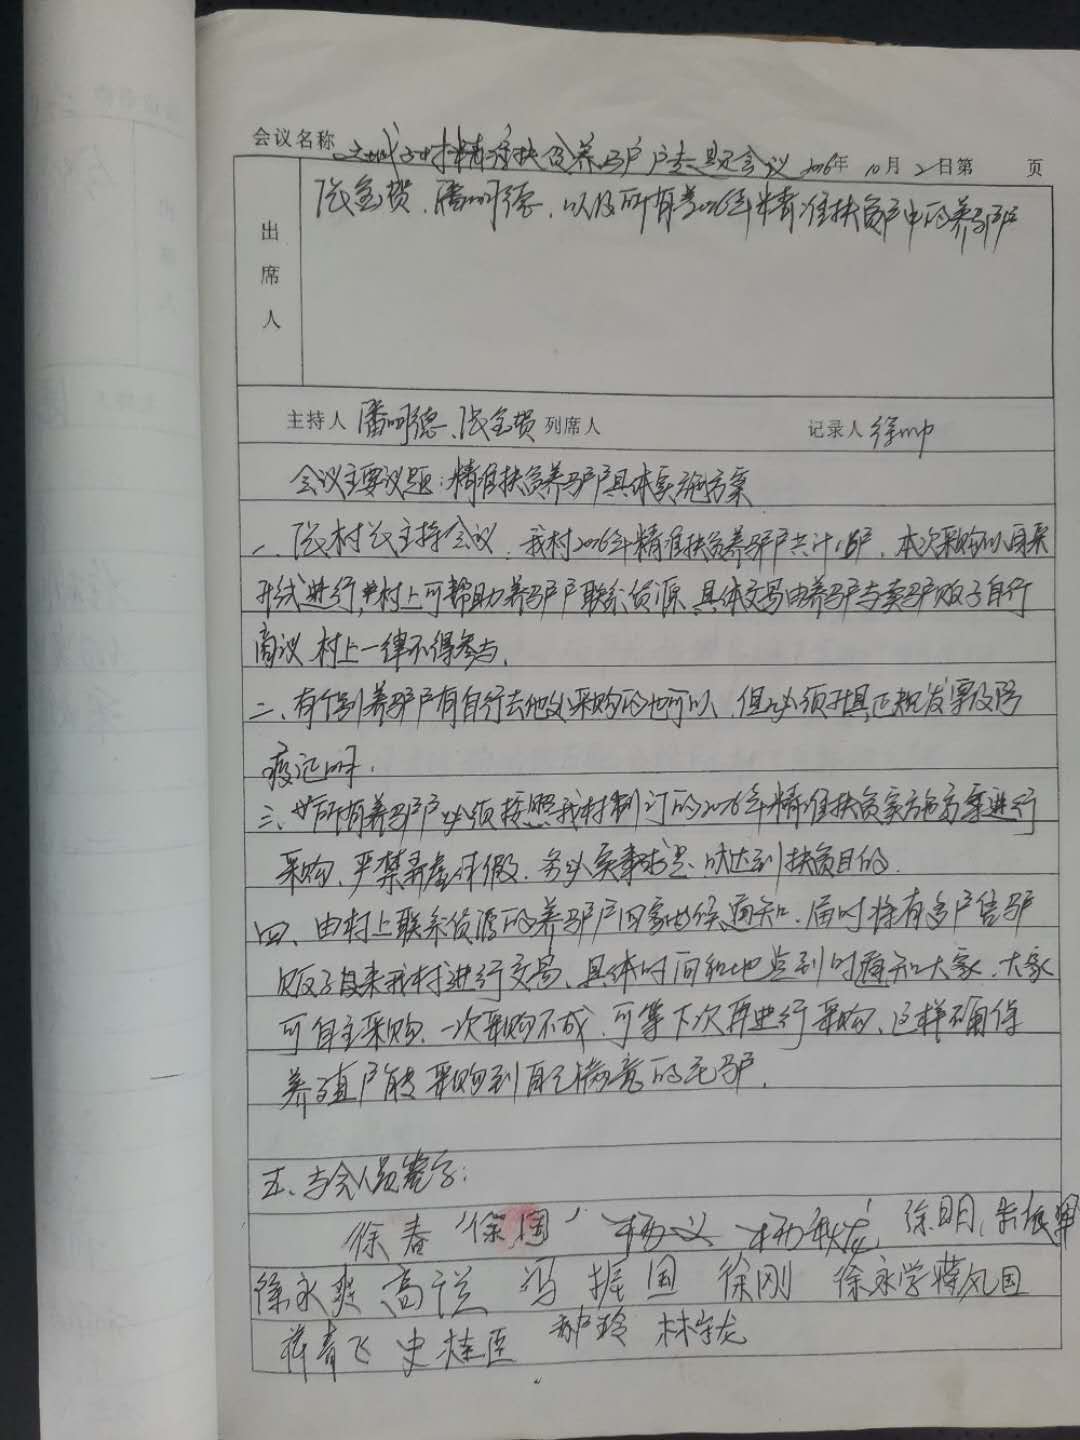 会议名称 村精准扶贫养驴户会议 2016年 10月 2日第 页
出席人
张金贺、潘明德、以及所有2016年精准扶贫户中的养驴户
主持人 潘明德、张金贺 列席人 记录人 徐帅
会议主要议题：精准扶贫养驴户具体实施方案
一、张村长主持会议，我村2016年精准扶贫养驴户共计 户，本次采购以自采
形式进行，村上可帮助养驴户联系货源，具体交易由养驴户与卖驴贩子自行
商议，村上一律不得参与。
二、有个别养驴户有自行去他处采购的也可以，但必须开具正规发票及防
疫证明。
三、所有养驴户必须按照我村制订的2016年精准扶贫实施方案进行
采购，严禁弄虚作假，务必实事求是，以达到扶贫目的。
四、由村上联系货源的养驴户回家等候通知，届时将有多户售驴
贩子自来我村进行交易，具体时间和地点到时通知大家，大家
可自主采购，一次采购不成，可等下次再进行采购，这样确保
养殖户能采购到自己满意的毛驴。
五、与会人员签字：
徐春 徐国 杨义 杨秋龙 徐明
徐永爽 高 冯振国 徐刚 徐永学 蒋凤国
蒋青飞 史桂臣 玲 林宇龙